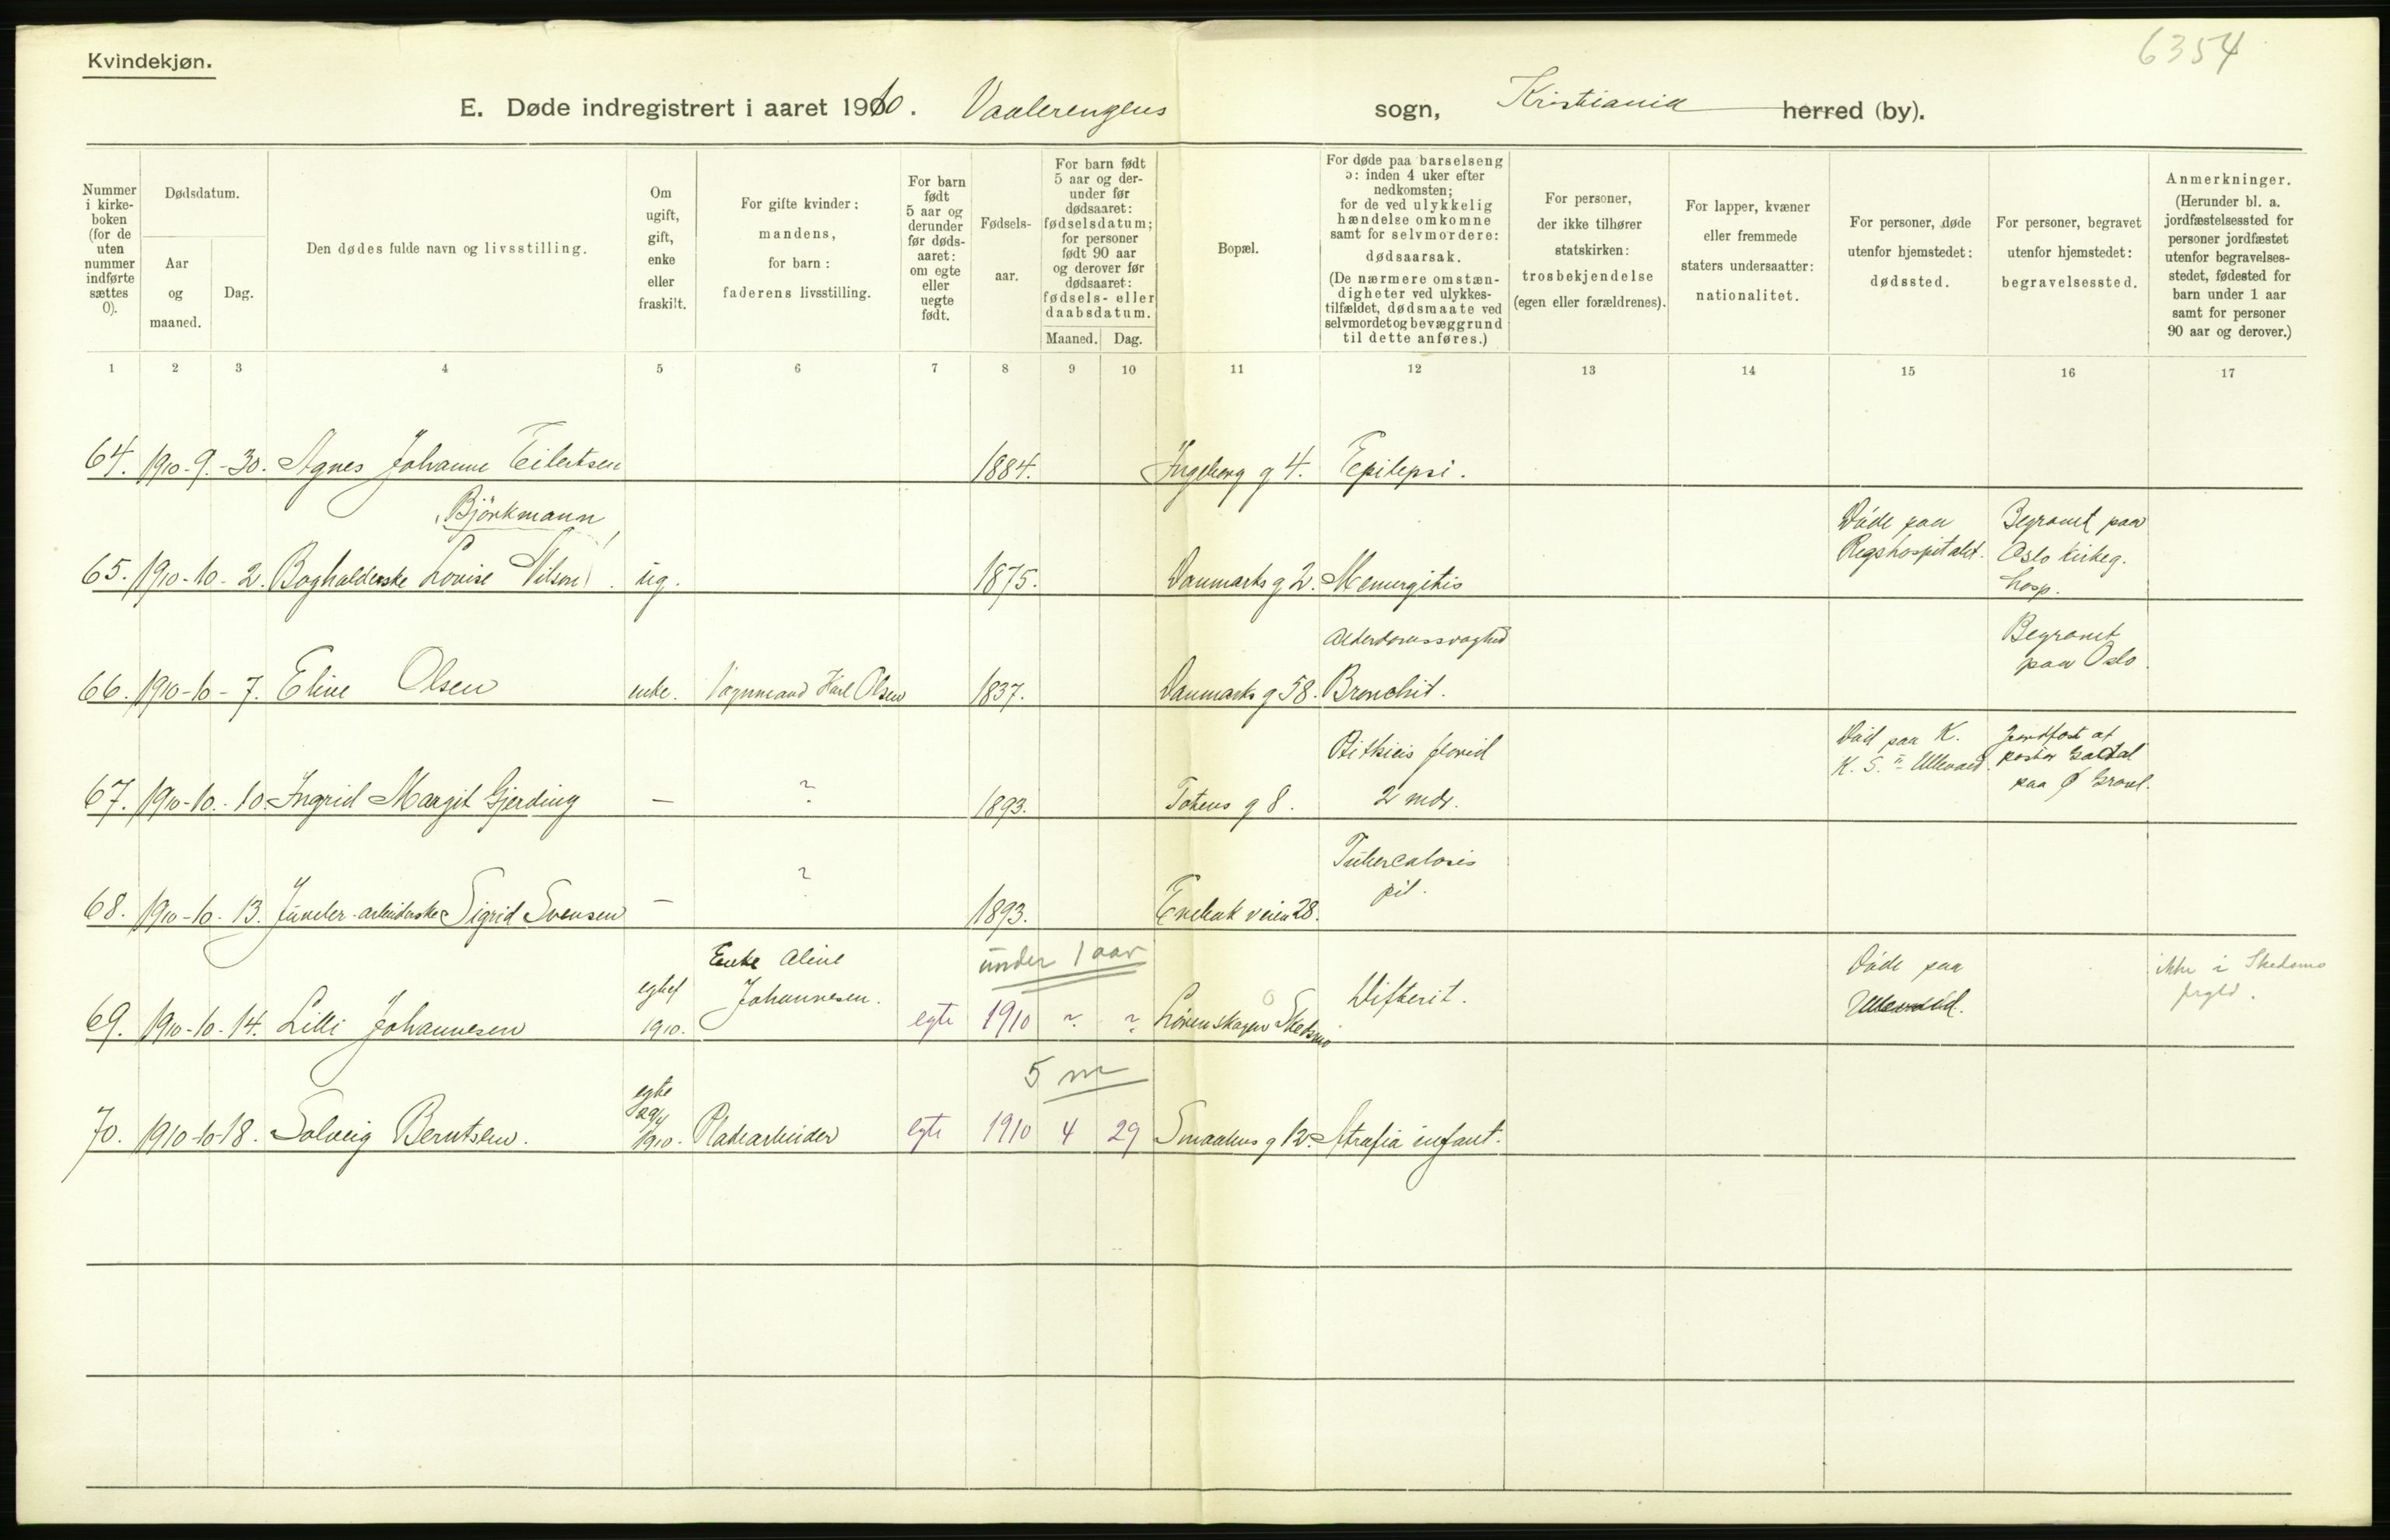 6354
Kvindekjøn.
E. Døde indregistrert i aaret 1910. Vaalerengens sogn, Kristiania herred (by).
Nummer i kirke-boken (for de uten nummer indførte sættes 0).
Dødsdatum.
Aar og maaned.
Dag.
Den dødes fulde navn og livsstilling.
Om ugift, gift, enke eller fraskilt.
For gifte kvinder: mandens, for barn: faderens livsstilling.
For barn født 5 aar og derunder før døds-aaret: om egte eller uegte født.
Fødsels-aar.
For barn født 5 aar og der-under før dødsaaret: fødselsdatum; for personer født 90 aar og derover før dødsaaret: fødsels- eller daabsdatum.
Maaned. Dag.
Bopæl.
For døde paa barselseng ɔ: inden 4 uker efter nedkomsten; for de ved ulykkelig hændelse omkomne samt for selvmordere: dødsaarsak. (De nærmere omstæn-digheter ved ulykkes-tilfældet, dødsmaate ved selvmordet og bevæggrund til dette anføres.)
For personer, der ikke tilhører statskirken: trosbekjendelse (egen eller forældrenes).
For lapper, kvæner eller fremmede staters undersaatter: nationalitet.
For personer, døde utenfor hjemstedet: dødssted.
For personer, begravet utenfor hjemstedet: begravelsessted.
Anmerkninger. (Herunder bl. a. jordfæstelsessted for personer jordfæstet utenfor begravelses-stedet, fødested for barn under 1 aar samt for personer 90 aar og derover.)
1 2 3 4 5 6 7 8 9 10 11 12 13 14 15 16 17
64. 1910-9.-30. Agnes Johanne Eilertsen 1884. Ingeborg g 4. Epilepsi.
Björkmann Døde paa Begravet paa
Rigshospitalet. Oslo kirkeg.
65. 1910-10-2. Bogholderske Lovise Nilson ug. 1875. Danmarks g 2. Meningitis hosp.
Alderdomssvaghed Begravet
paa Oslo.
66. 1910-10-7. Eline Olsen enke. Vognmand Karl Olsen 1837. Danmarks g 58. Bronchit.
florid Död paa K. Jordfæst af
K. S. Ullevaal. pastor
paa Ø Gravl.
67. 1910-10.-10. Ingrid Margit Gjerding — ? 1893. Totens g 8. 2 mdr.
Tuberculosis
68. 1910-10-13. arbeiderske Sigrid Svensen — ? 1893. Enebak veien 28. pil.
Enke Aline under 1 aar Døde paa ikke i Skedsmo
egtef Johannesen. Difterit. Ullevaal.
69. 1910-10-14. Lilli Johannesen 1910. egte 1910 ? ? Lørenskogen Skedsmo
5 m
egte
29/4
70. 1910-10-18. Solveig Berntsen. 1910. Pladearbeider egte 1910 4 29 Smaalens g 12. Atrofia infant.